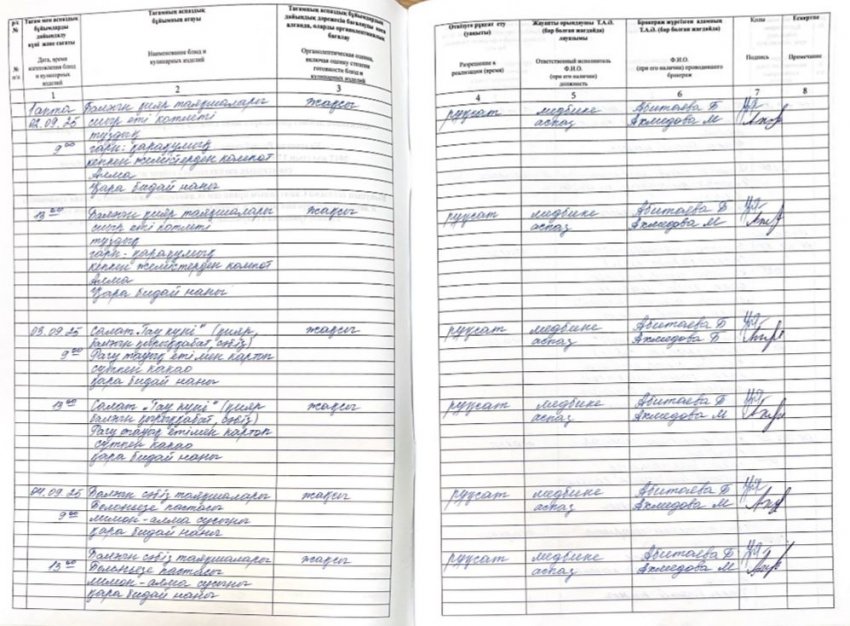 р/с №
Тағам мен аспаздық бұйымдарды дайындалу күні және сағаты
Тағамның аспаздық бұйымның атауы
Тағамның, аспаздық бұйымдардың
алғанда, оларды органолептикалық бағалау
№ п/п
Дата, время изготовления блюд и кулинарных изделий
Наименование блюд и кулинарных изделий
Органолептическая оценка, включая оценку степени готовности блюд и кулинарных изделий
1 2 3
1 апта Балғын қияр таяқшалары жақсы
02.09.25 сиыр еті котлеті
тұздық
9 00 гарн: қарақұмық
кепкен жемістерден компот
Алма
Қара бидай наны
13 00 Балғын қияр таяқшалары жақсы
сиыр еті котлеті
тұздық
гарн- қарақұмық
кепкен жемістерден компот
Алма
Қара бидай наны
03.09.25 Салат "Тау күні" (қияр, жақсы
балғын қырыққабат, сәбіз)
9 00 Рагу тауық етімен картоп
сүтпен какао
қара бидай наны
13 00 Салат "Тау күні" (қияр жақсы
балғын қырыққабат, сәбіз)
Рагу тауық етімен картоп
сүтпен какао
қара бидай наны
04.09.25 Балғын сәбіз таяқшалары жақсы
Болоньезе пастасы
9 00 лимон-алма сусыны
қара бидай наны
13 00 Балғын сәбіз таяқшалары жақсы
Болоньезе пастасы
лимон-алма сусыны
қара бидай наны
Өткізуге рұқсат ету (уақыты)
Жауапты орындаушы Т.А.Ә. (бар болған жағдайда) лауазымы
Бракераж жүргізген адамның Т.А.Ә. (бар болған жағдайда)
Қолы
Ескертпе
Разрешение к реализации (время)
Ответственный исполнитель Ф.И.О. (при его наличии) должность
Ф.И.О. (при его наличии) проводившего бракераж
Подпись
Примечание
4 5 6 7 8
руұқсат медбике Абитаева Б
аспаз Ахмедова М
руұқсат медбике Абитаева Б
аспаз Ахмедова М
руұқсат медбике Абитаева Б
аспаз Ахмедова М
руұқсат медбике Абитаева Б
аспаз Ахмедова М
руұқсат медбике Абитаева Б
аспаз Ахмедова М
руұқсат медбике Абитаева Б
аспаз Ахмедова М